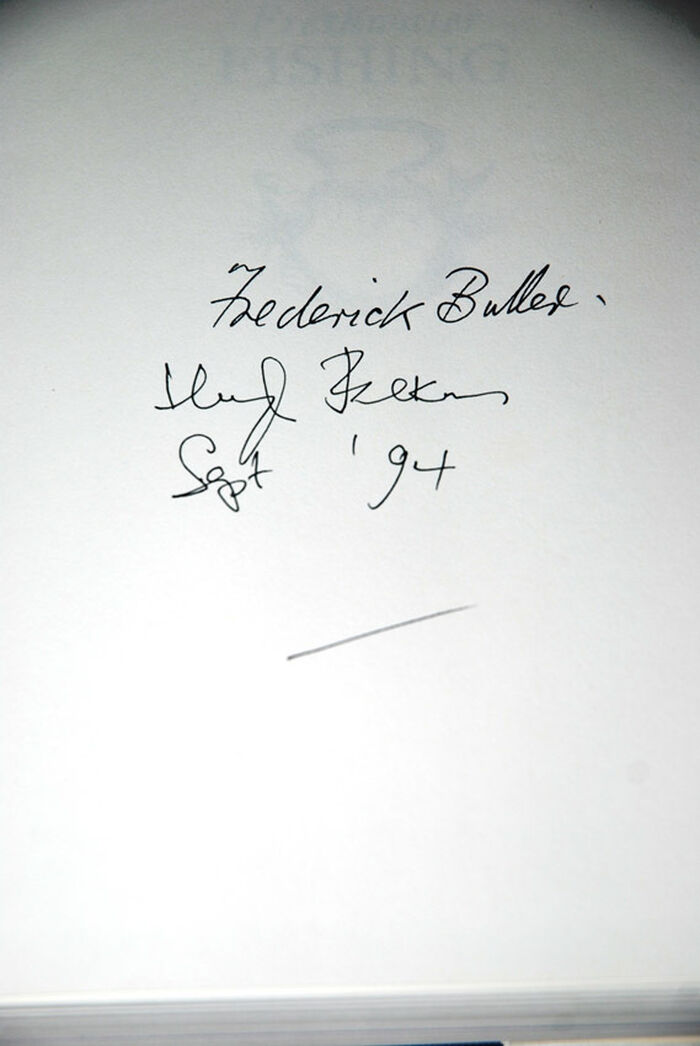 Freshwater
FISHING
Frederick Buller.
Hugh Falkus
Sept '94